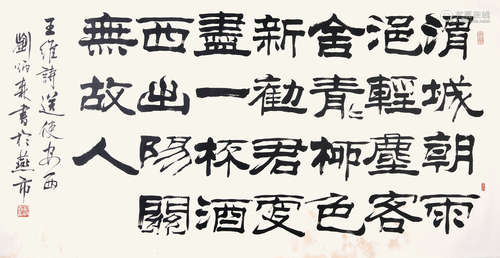 渭城朝雨
浥輕塵客
舍青〻柳色
新勸君更
盡一杯酒
西出陽關
無故人
王維詩送使安西
劉炳森書於燕市